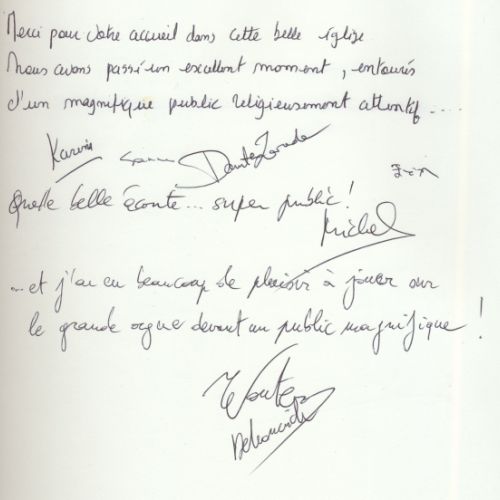 Merci pour votre accueil dans cette belle église
Nous avons passé un excellent moment, entourés
d'un magnifique public religieusement attentif....
Karin
Quelle belle écoute... super public!
Michel
...et j'ai eu beaucoup de plaisir à jouer sur
le grande orgue devant un public magnifique!
Wouter